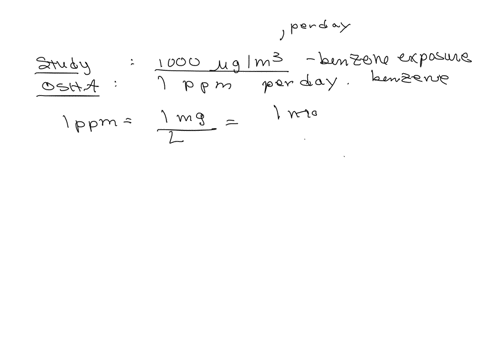 , per day
Study : 1000 µg/m³ - benzene exposure
OSHA : 1 ppm per day. benzene
1 ppm = 1 mg / L = 1 mg